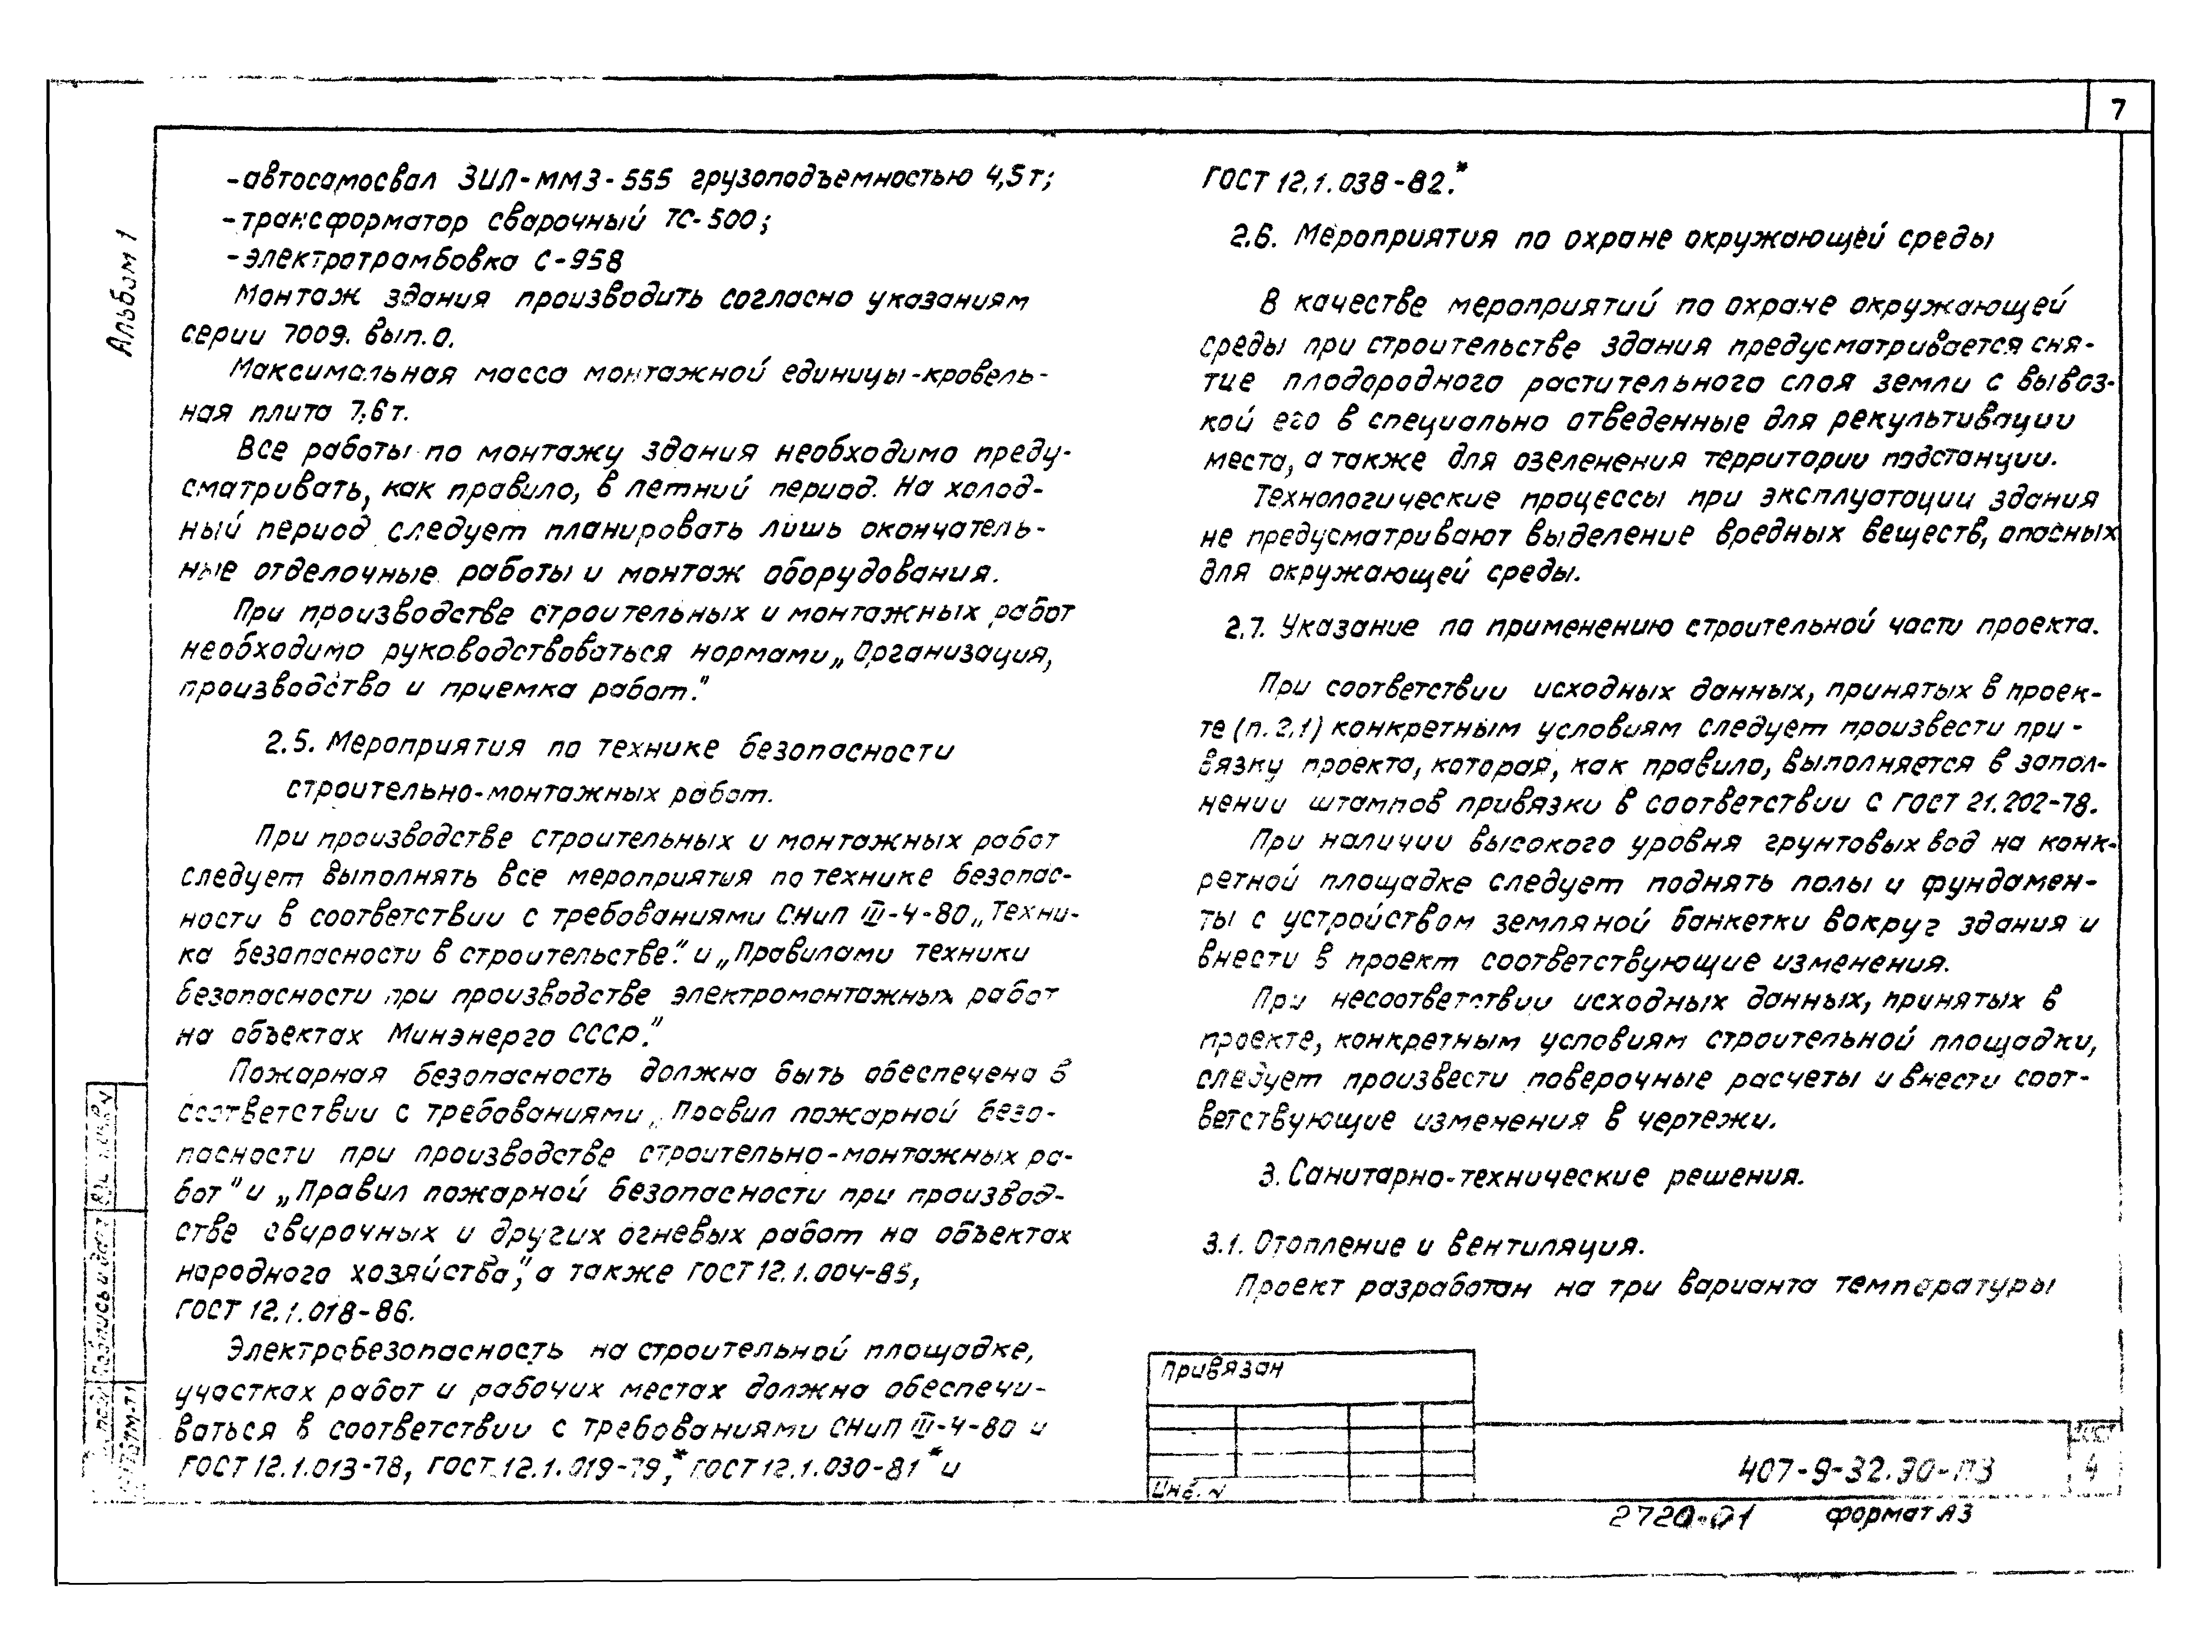 7
Альбом 1
-автосамосвал ЗИЛ-ММЗ-555 грузоподъемностью 4,5т;
-трансформатор сварочный ТС-500;
-электротрамбовка С-958
Монтаж здания производить согласно указаниям
серии 7009. вып.0.
Максимальная масса монтажной единицы-кровель-
ная плита 7,6т.
Все работы по монтажу здания необходимо преду-
сматривать, как правило, в летний период. На холод-
ный период следует планировать лишь окончатель-
ные отделочные работы и монтаж оборудования.
При производстве строительных и монтажных работ
необходимо руководствоваться нормами „Организация,
производство и приемка работ."
2.5. Мероприятия по технике безопасности
строительно-монтажных работ.
При производстве строительных и монтажных работ
следует выполнять все мероприятия по технике безопас-
ности в соответствии с требованиями СНиП III-4-80 „Техни-
ка безопасности в строительстве". и „Правилами техники
безопасности при производстве электромонтажных работ
на объектах Минэнерго СССР."
Пожарная безопасность должна быть обеспечена в
соответствии с требованиями „Правил пожарной безо-
пасности при производстве строительно-монтажных ра-
бот" и „Правил пожарной безопасности при производ-
стве сварочных и других огневых работ на объектах
народного хозяйства", а также ГОСТ 12.1.004-85,
ГОСТ 12.1.018-86.
Электробезопасность на строительной площадке,
участках работ и рабочих местах должна обеспечи-
ваться в соответствии с требованиями СНиП III-4-80 и
ГОСТ 12.1.013-78, ГОСТ 12.1.019-79,* ГОСТ 12.1.030-81* и
ГОСТ 12.1.038-82.*
2.6. Мероприятия по охране окружающей среды
В качестве мероприятий по охране окружающей
среды при строительстве здания предусматривается сня-
тие плодородного растительного слоя земли с вывоз-
кой его в специально отведенные для рекультивации
места, а также для озеленения территории подстанции.
Технологические процессы при эксплуатации здания
не предусматривают выделение вредных веществ, опасных
для окружающей среды.
2.7. Указание по применению строительной части проекта.
При соответствии исходных данных, принятых в проек-
те (п. 2.1) конкретным условиям следует произвести при-
вязку проекта, которая, как правило, выполняется в запол-
нении штампов привязки в соответствии с ГОСТ 21.202-78.
При наличии высокого уровня грунтовых вод на конк-
ретной площадке следует поднять полы и фундамен-
ты с устройством земляной банкетки вокруг здания и
внести в проект соответствующие изменения.
При несоответствии исходных данных, принятых в
проекте, конкретным условиям строительной площадки,
следует произвести поверочные расчеты и внести соот-
ветствующие изменения в чертежи.
3. Санитарно-технические решения.
3.1. Отопление и вентиляция.
Проект разработан на три варианта температуры
Привязан
Инв. N
407-9-32.90-ПЗ
Лист
4
2720-01 формат А3
Подпись и дата